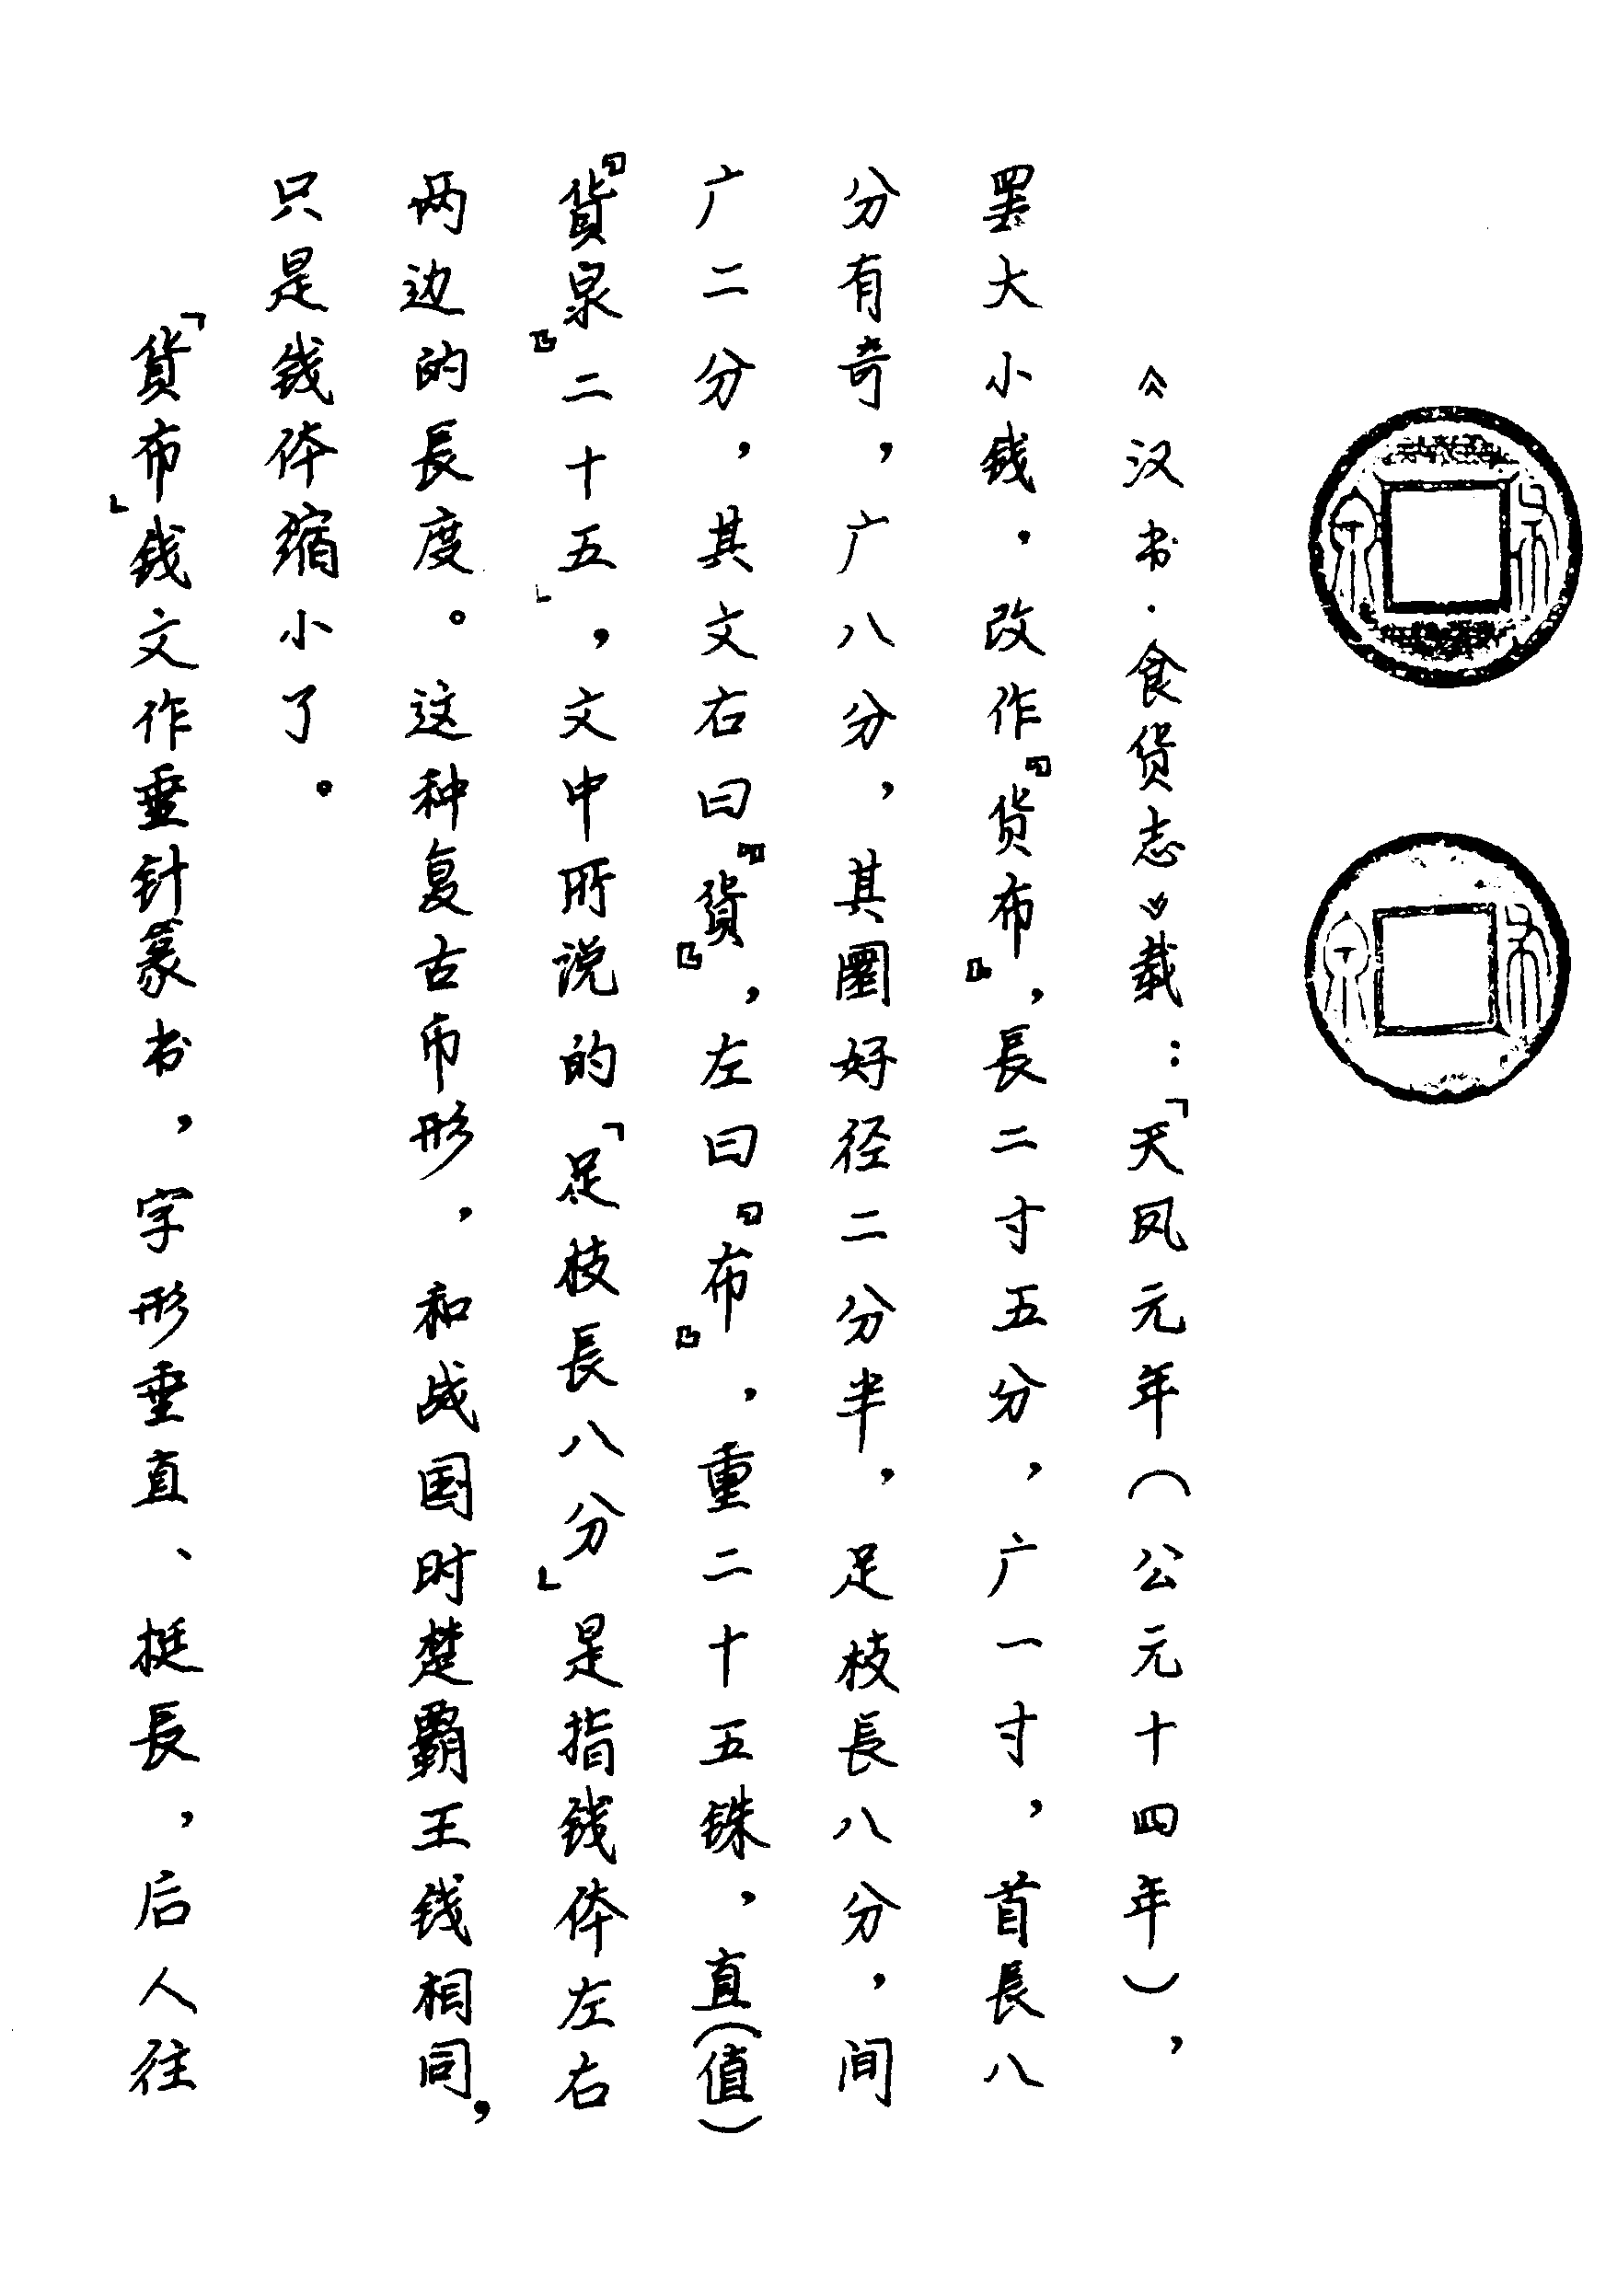 《汉书·食货志》载：「天凤元年（公元十四年），
罢大小钱，改作『货布』，長二寸五分，广一寸，首長八
分有奇，广八分，其圜好径二分半，足枝長八分，间
广二分，其文右曰『貨』，左曰『布』，重二十五铢，直（值）
『貨泉』二十五」，文中所说的「足枝長八分」是指钱体左右
两边的長度。这种复古币形，和战国时楚霸王钱相同，
只是钱体缩小了。
「貨布」钱文作垂针篆书，字形垂直、挺長，后人往